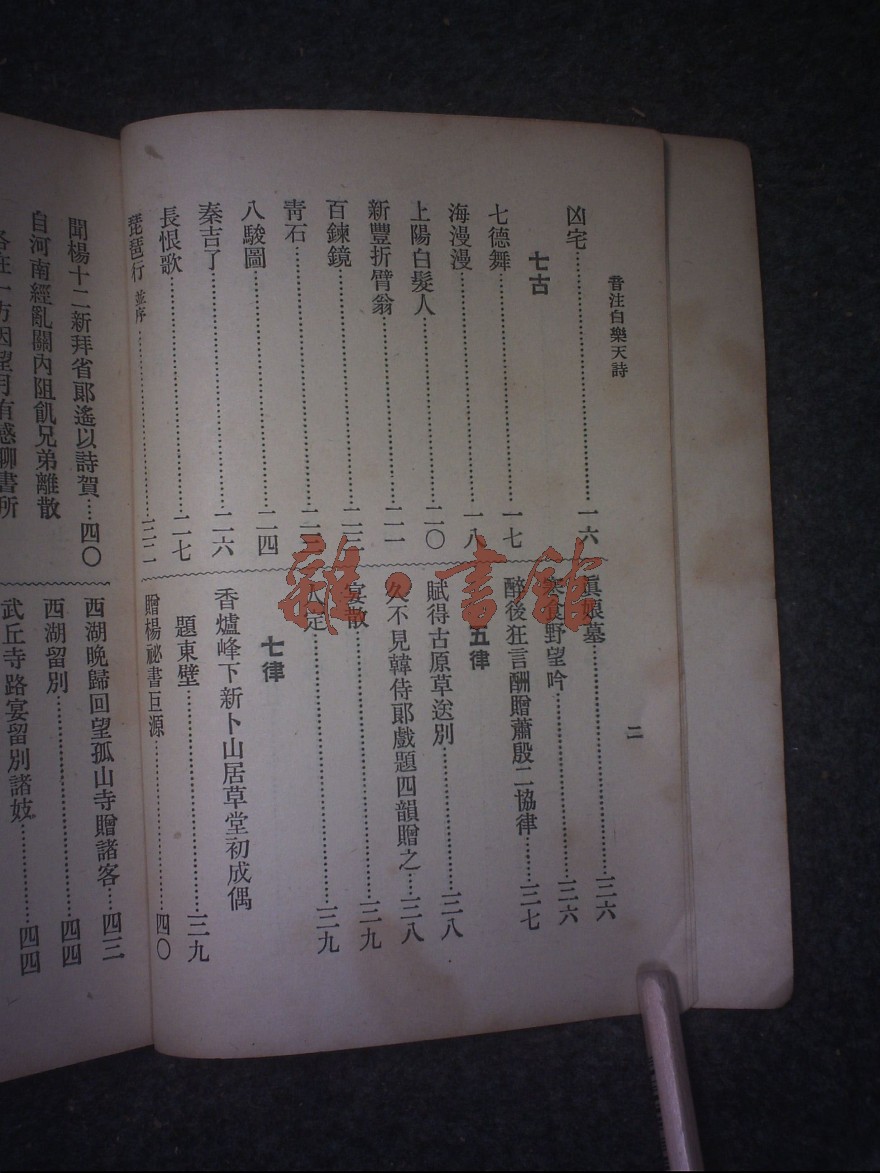 音注白樂天詩
二
凶宅……一六
七古
七德舞……一七
海漫漫……一八
上陽白髮人……二〇
新豐折臂翁……二一
百鍊鏡……二三
靑石……二三
八駿圖……二四
秦吉了……二六
長恨歌……二七
琵琶行 並序……三二
眞娘墓……三六
野望吟……三六
醉後狂言酬贈蕭殷二協律……三七
五律
賦得古原草送別……三八
久不見韓侍郞戲題四韻贈之……三八
宴散……三九
人定……三九
七律
香爐峰下新卜山居草堂初成偶
題東壁……三九
贈楊祕書巨源……四〇
聞楊十二新拜省郞遙以詩賀……四〇
自河南經亂關內阻飢兄弟離散
各在一方因望月有感聊書所
西湖晚歸回望孤山寺贈諸客……四三
西湖留別……四四
武丘寺路宴留別諸妓……四四
雜·書館